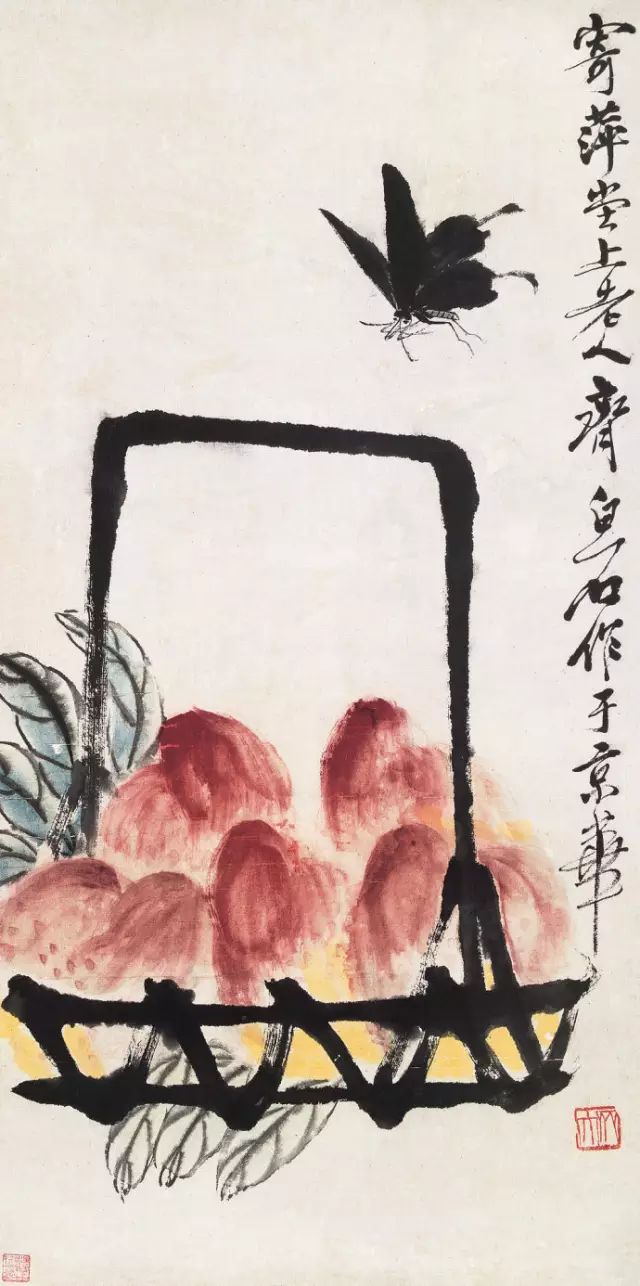 寄萍堂上老人齊白石作于京華